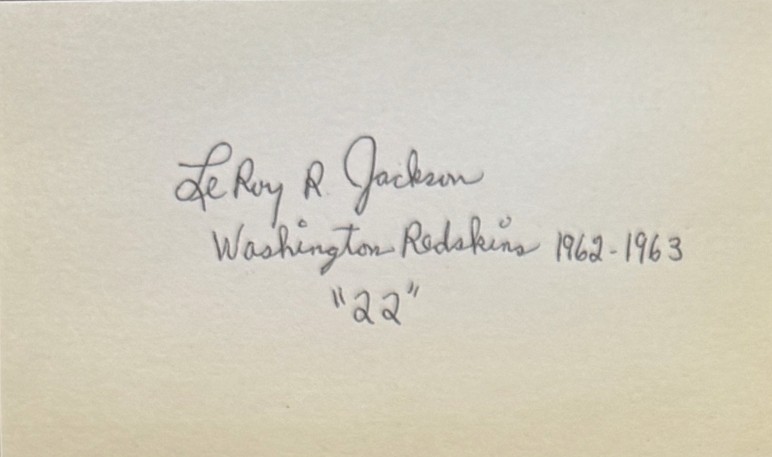 LeRoy R. Jackson
Washington Redskins 1962-1963
"22"